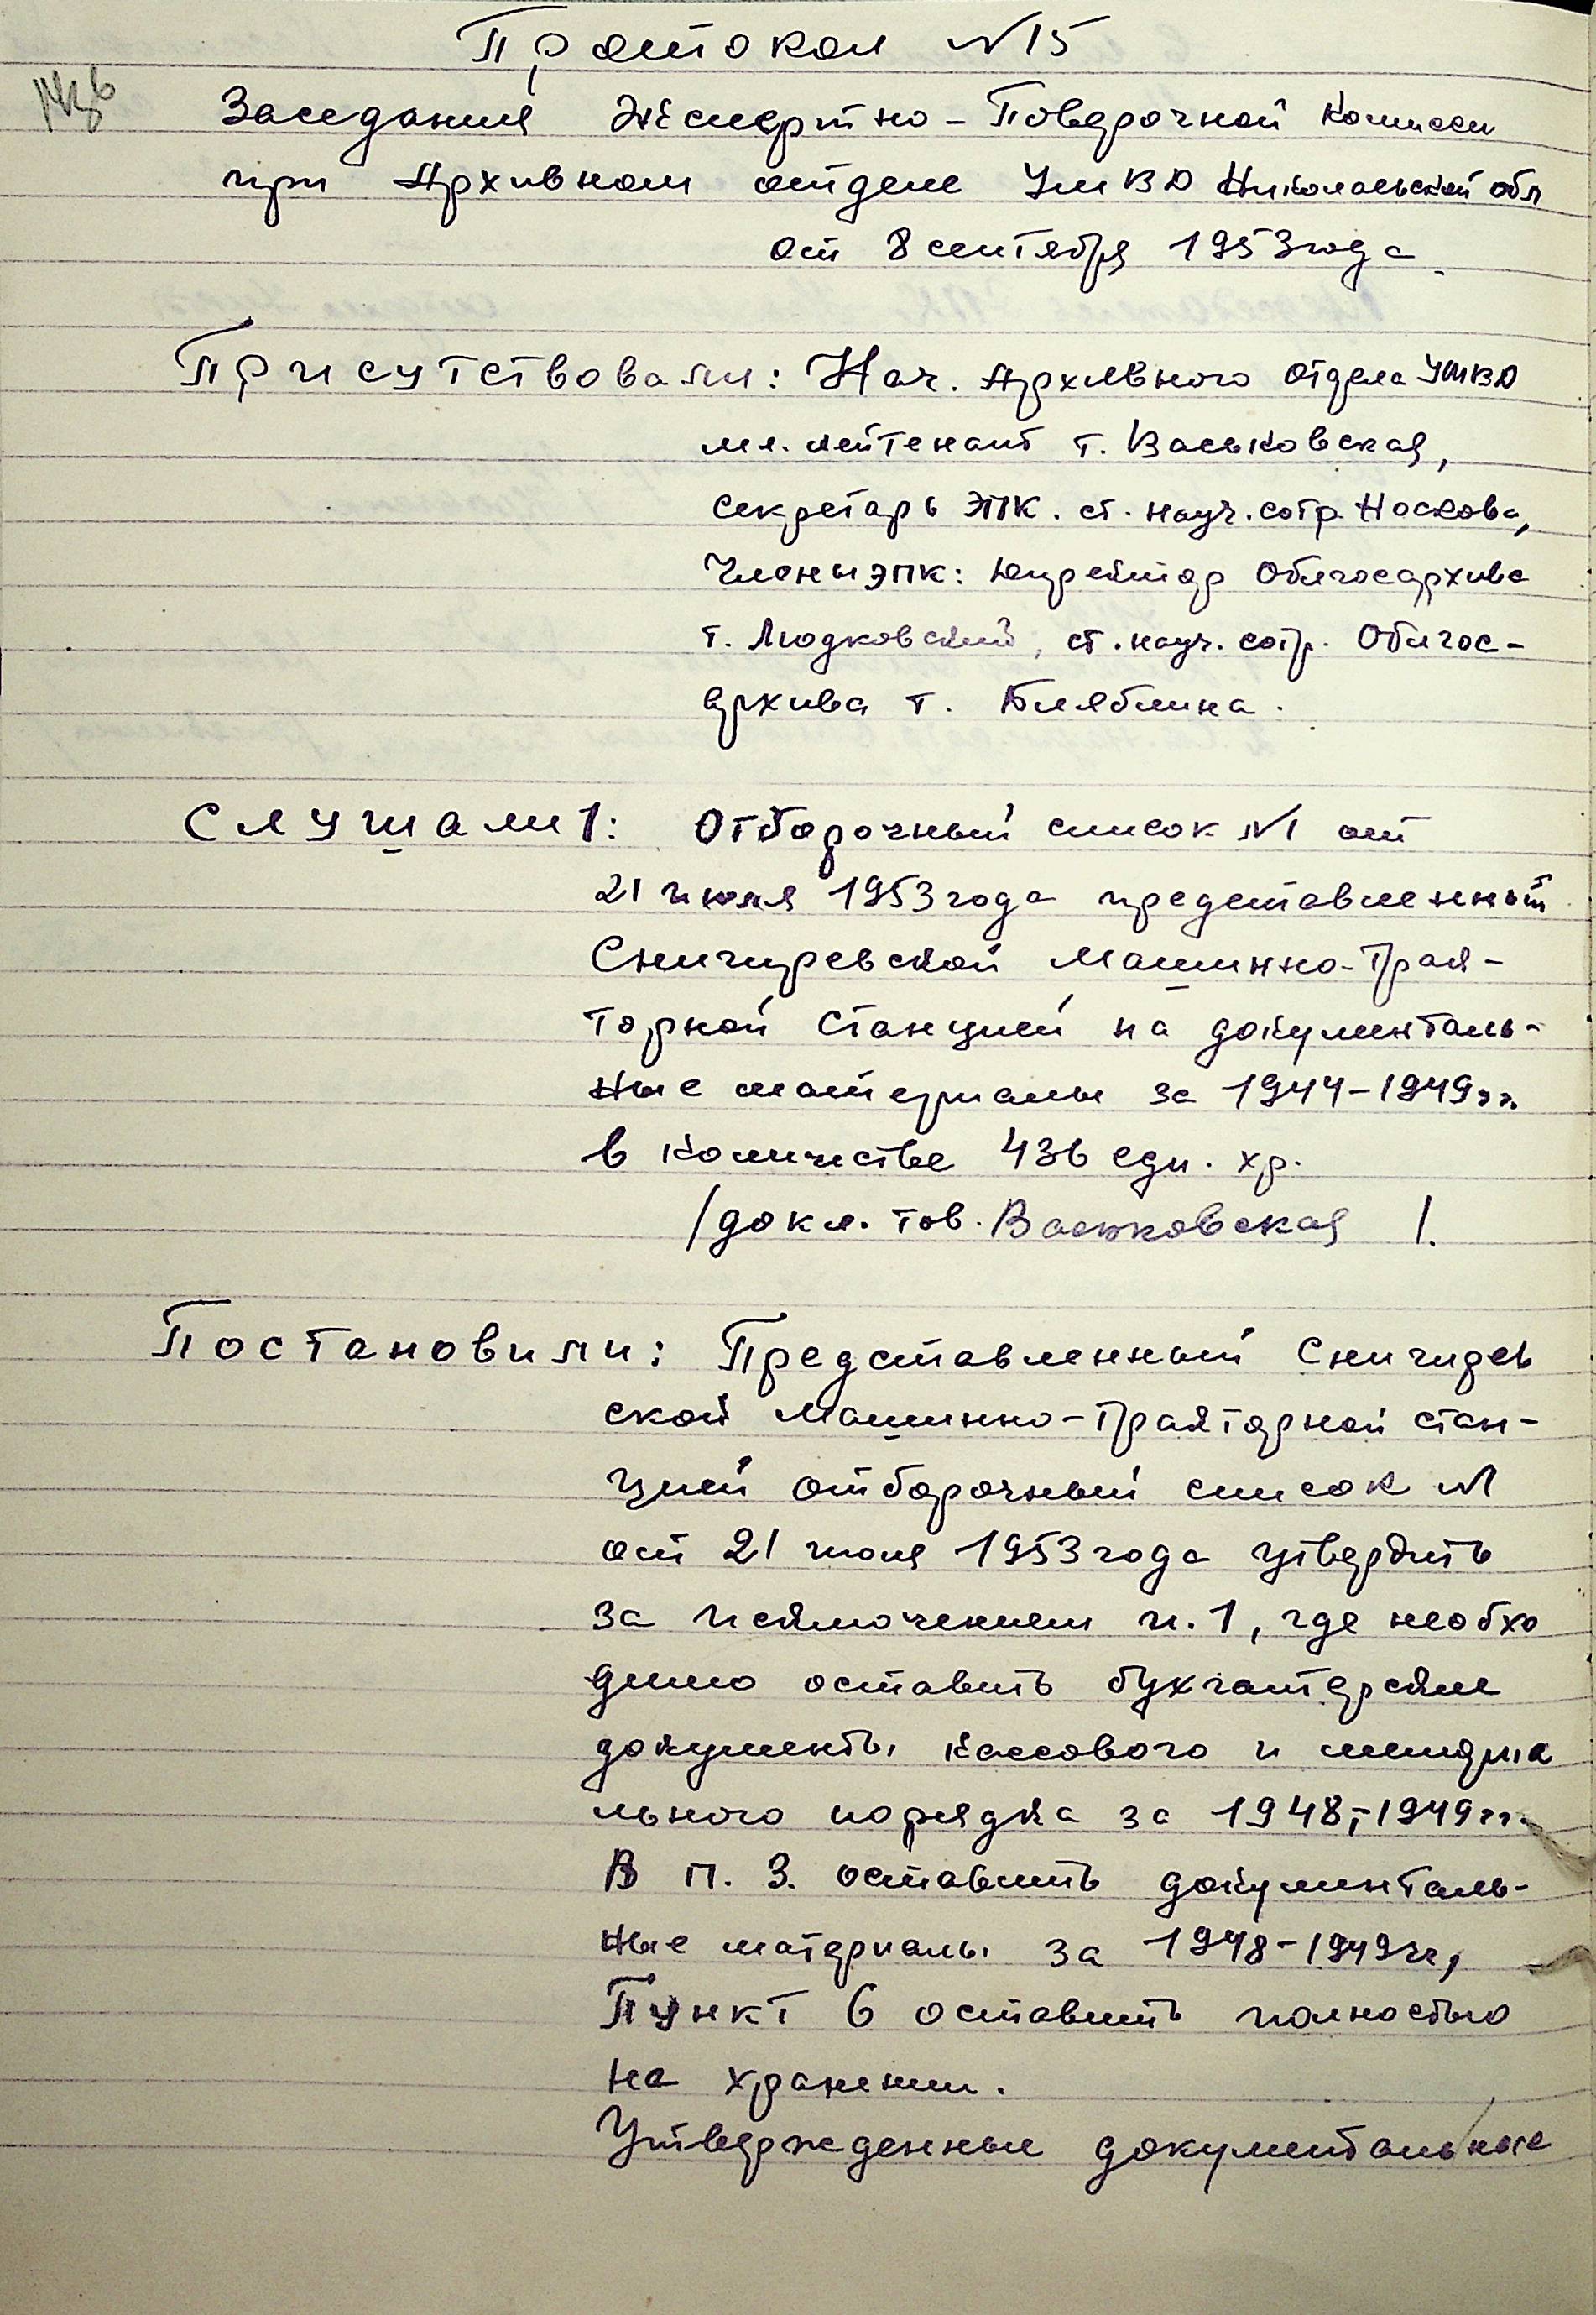 Протокол №15
Заседания Экспертно-Поверочной Комиссии
при Архивном отделе УМВД Николаевской обл
от 8 сентября 1953 года
Присутствовали: Нач. Архивного Отдела УМВД
мл. лейтенант т. Васьковская,
секретарь ЭПК. ст. науч. сотр. Носкова,
Члены ЭПК: директор Облгосархива
т. Людковский, ст. науч. сотр. Облгос-
архива т. Бляблина.
Слушали 1: Отборочный список №1 от
21 июля 1953 года представленный
Снигиревской Машинно-Трак-
торной станцией на документаль-
ные материалы за 1944-1949 гг.
в количестве 436 един. хр.
/докл. тов. Васьковская /.
Постановили: Представленный Снигирев
ской Машинно-Тракторной стан-
цией отборочный список №1
от 21 июля 1953 года утвердить
за исключением п. 1, где необхо
димо оставить бухгалтерские
документы кассового и мемориа
льного порядка за 1948,-1949 гг.
В п. 3. оставить документаль-
ные материалы за 1948-1949 гг,
Пункт 6 оставить полностью
на хранении.
Утвержденные документальные